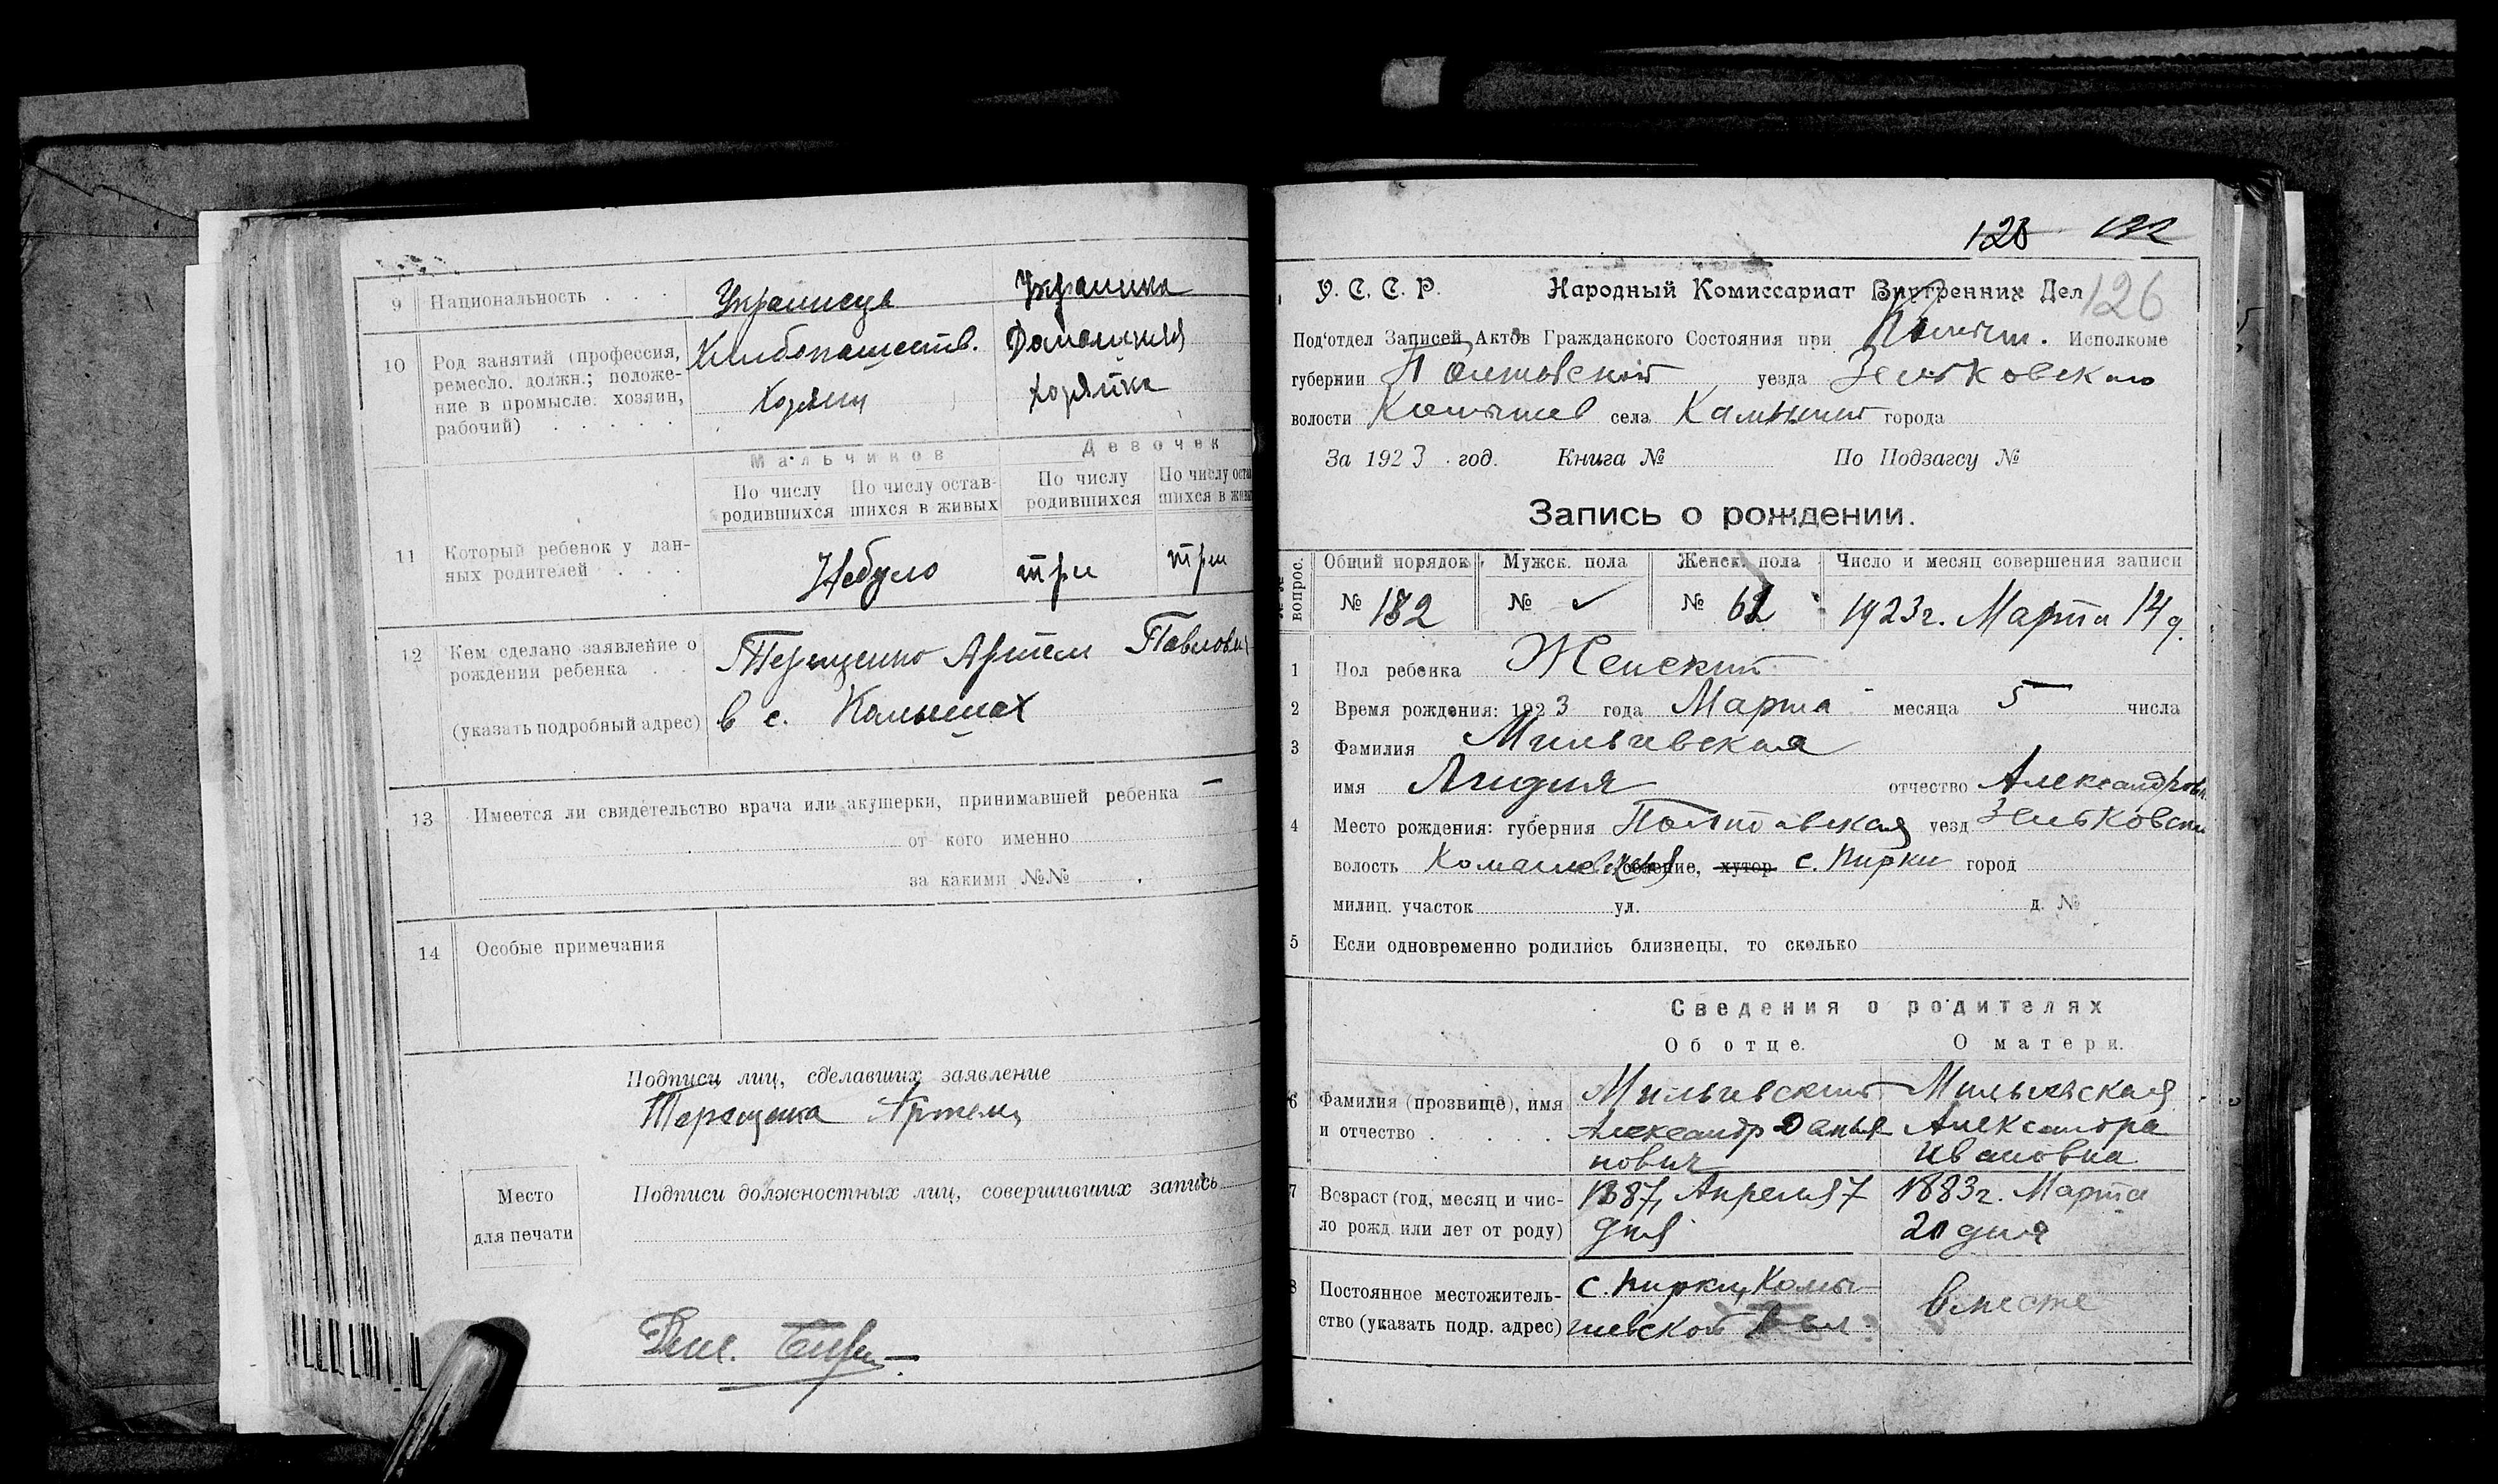 9 Национальность . . . Украинець Украинка
10 Род занятий (профессия, Хлибопашеств. Домашняя
ремесло, должн.; положе-
ние в промысле: хозяин, Хозяин хозяйка
рабочий) . . . . .
Мальчиков Девочек
По числу По числу остав- По числу По числу оста
родившихся шихся в живых родившихся шихся в жив
11 Который ребенок у дан-
ных родителей . . . Небуло три три
12 Кем сделано заявление о Терещенко Артем Павлови
рождении ребенка . .
(указать подробный адрес) в с. Камышах
13 Имеется ли свидетельство врача или акушерки, принимавшей ребенка —
от кого именно
за какими №№
14 Особые примечания
Подписи лиц, сделавших заявление
Терещенко Артем
Место Подписи должностных лиц, совершивших запись
для печати
128
126
У. С. С. Р. Народный Комиссариат Внутренних Дел
Под'отдел Записей Актов Гражданского Состояния при Исполкоме
губернии Полтавской уезда Зеньковского
волости села Камыши города
За 1923 год. Книга № По Подзагсу №
Запись о рождении.
№№ вопрос. Общий порядок Мужск. пола Женск. пола Число и месяц совершения записи
№ 182 № ✓ № 62 1923г. Марта 14 д.
1 Пол ребенка Женский
2 Время рождения: 1923 года Марта месяца 5 числа
3 Фамилия Мильчевская
имя Лидия отчество Александровн.
4 Место рождения: губерния Полтавская уезд Зеньковски
волость селение, хутор с. Пирки город
милиц. участок ул. д. №
5 Если одновременно родились близнецы, то сколько
Сведения о родителях
Об отце. О матери.
6 Фамилия (прозвище), имя Мильчевский Мильчевская
и отчество . . . . Александр Данья- Александра
нович Ивановна
7 Возраст (год, месяц и чис- 1887, Апреля 7 1883г. Марта
ло рожд. или лет от роду) дня 20 дня
8 Постоянное местожитель- с. Пирки, Камы- вместе
ство (указать подр. адрес) шевской Вол.